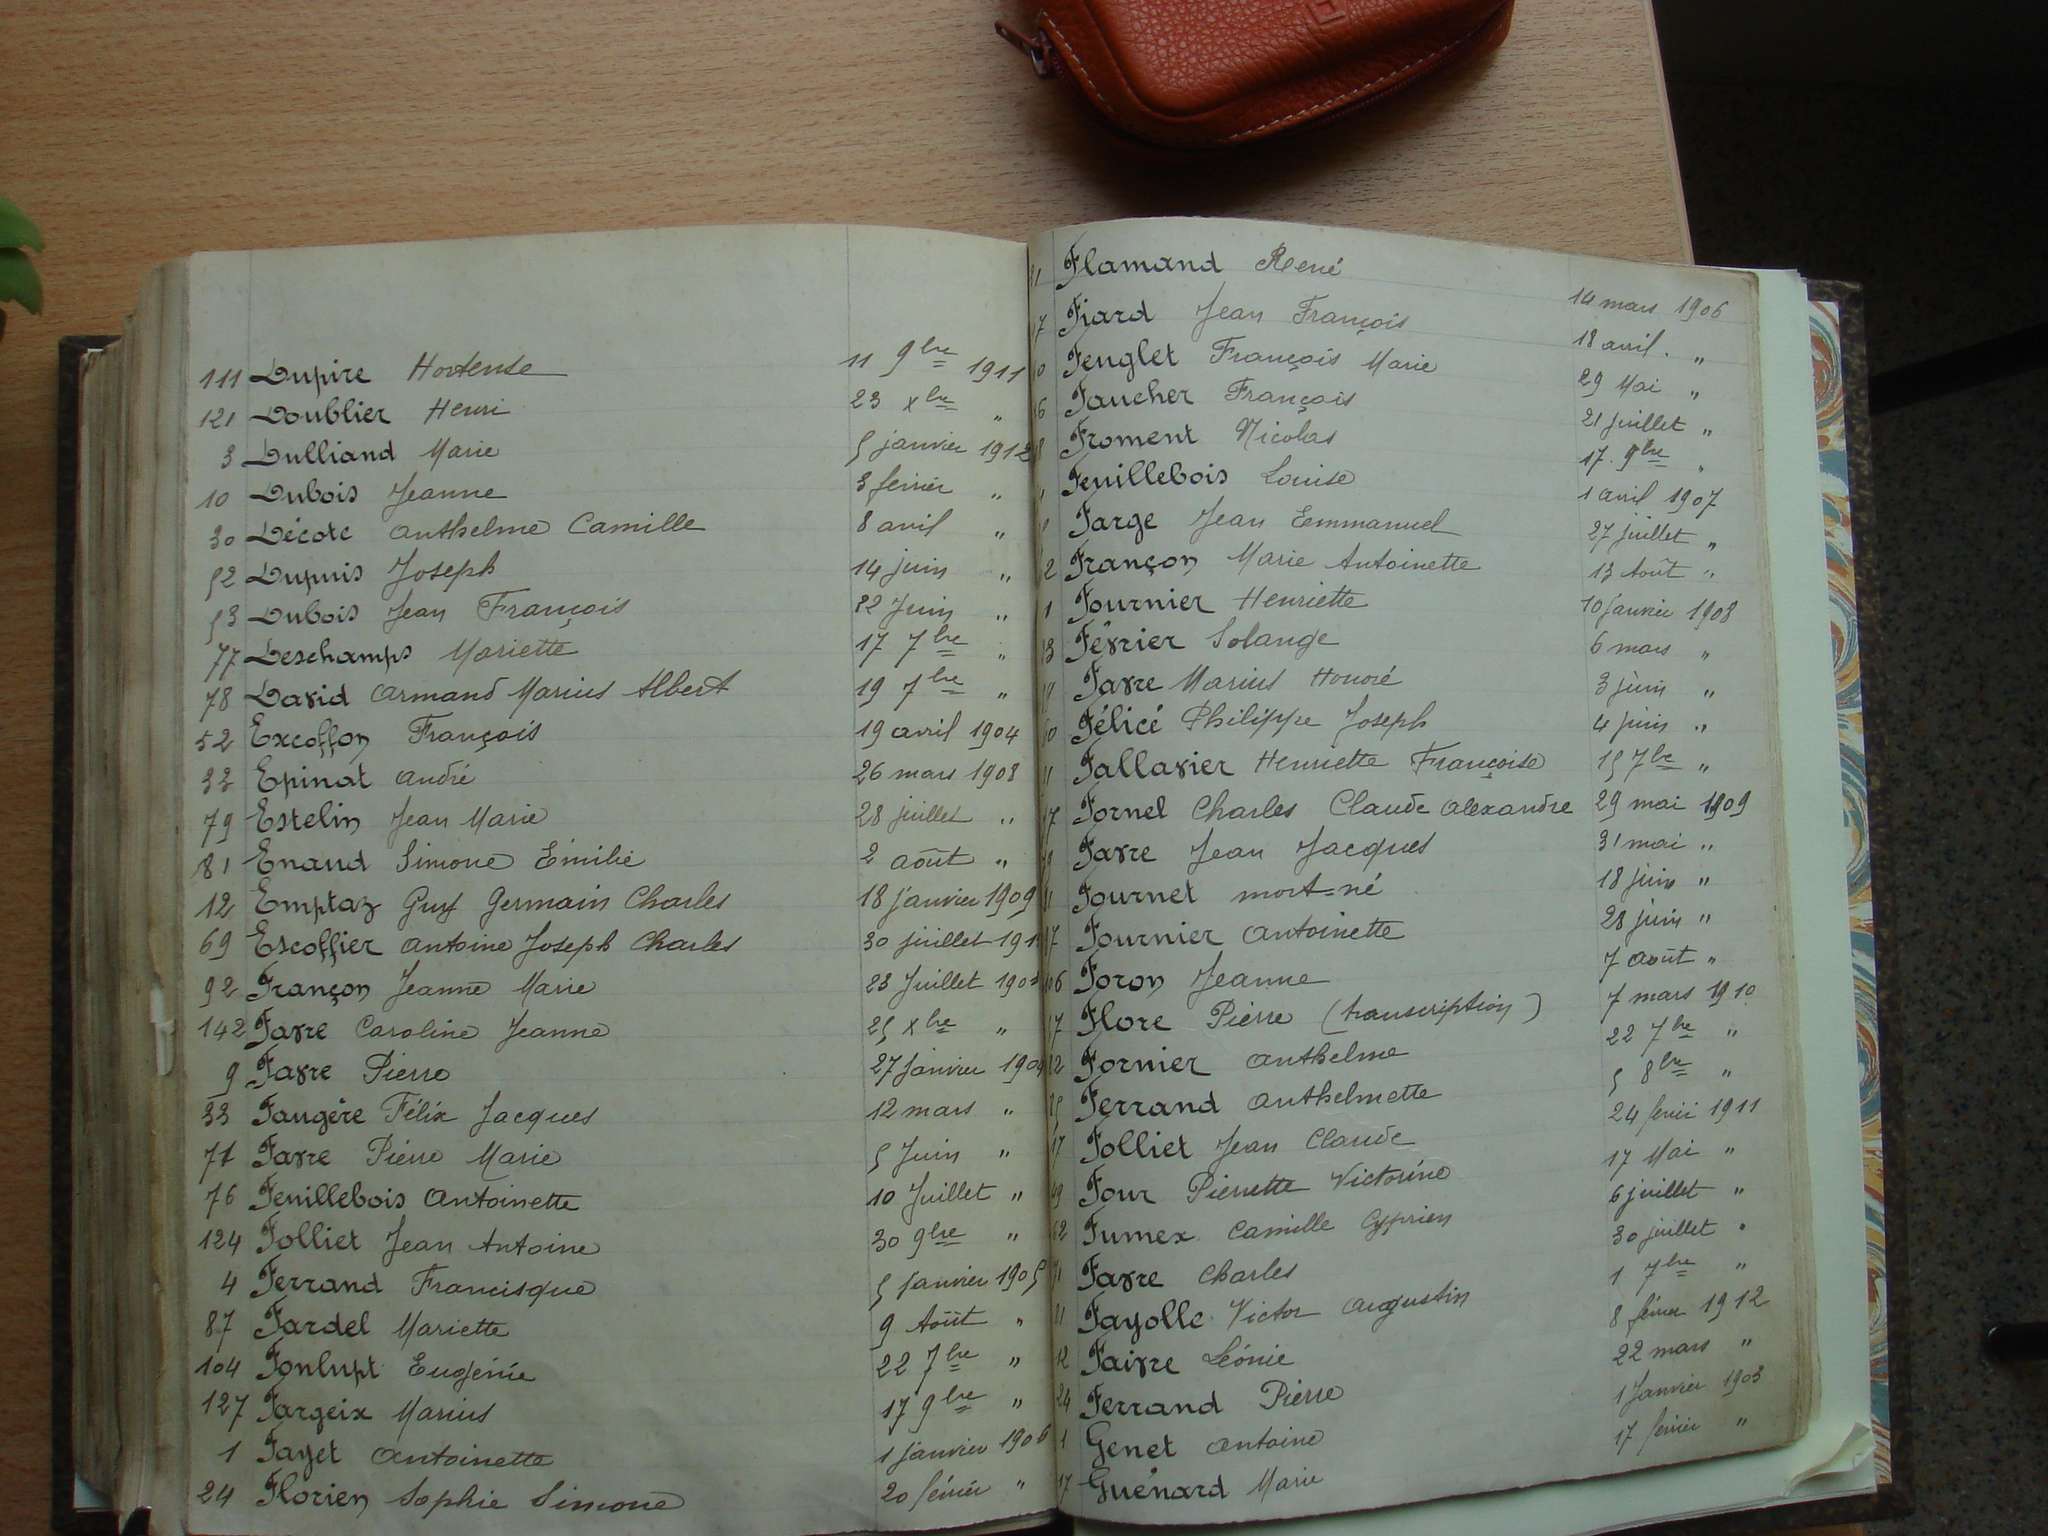 111 Dupire Hortense 11 9bre 1911
121 Doublier Henri 23 xbre "
3 Dulliand Marie 5 janvier 1912
10 Dubois Jeanne 3 février "
30 Décote Anthelme Camille 8 avril "
52 Dupuis Joseph 14 juin "
53 Dubois Jean François 22 Juin "
77 Deschamps Mariette 17 7bre "
78 David Armand Marius Albert 19 7bre "
52 Excoffon François 19 avril 1904
32 Epinat André 26 mars 1908
79 Estelin Jean Marie 28 juillet "
81 Enaud Simone Emilie 2 août "
12 Emptaz Guy Germain Charles 18 janvier 1909
69 Escoffier Antoine Joseph Charles 30 juillet
92 Françon Jeanne Marie 23 Juillet
142 Favre Caroline Jeanne 25 xbre "
9 Favre Pierre 27 janvier 1904
33 Faugère Félix Jacques 12 mars "
71 Favre Pierre Marie 5 Juin "
76 Feuillebois Antoinette 10 Juillet "
124 Folliet Jean Antoine 30 9bre "
4 Ferrand Francisque 5 Janvier 1905
87 Fardel Mariette 9 Août "
104 Fonlupt Eugénie 22 7bre "
127 Fargeix Marius 17 9bre "
1 Fayet Antoinette 1 janvier 1906
24 Florien Sophie Simone 20 février "
Flamand René 14 mars 1906
Fiard Jean François 18 avril. "
Fenglet François Marie 29 Mai "
Faucher François 21 juillet "
Froment Nicolas 17. 9bre "
Feuillebois Louise 1 avril 1907
Farge Jean Emmanuel 27 juillet "
Françon Marie Antoinette 13 Août "
Fournier Henriette 10 Janvier 1908
Février Solange 6 mars "
Favre Marius Honoré 3 juin "
Félicé Philippe Joseph 4 juin "
Fallavier Henriette Françoise 15 7bre "
Fornel Charles Claude Alexandre 29 mai 1909
Favre Jean Jacques 31 mai "
Fournet mort-né 18 juin "
Fournier Antoinette 28 juin "
Foron Jeanne 7 août "
Flore Pierre (transcription) 7 mars 1910
Fornier Anthelme 22 7bre "
Ferrand Anthelmette 5 8bre "
Folliet Jean Claude 24 févri 1911
Four Pierrette Victorine 17 Mai "
Fumex Camille Cyprien 6 juillet "
Favre Charles 30 juillet "
Fayolle Victor Augustin 1 7bre "
Faivre Léonie 8 février 1912
Ferrand Pierre 22 mars "
Genet Antoine 1 Janvier 1903
Guénard Marie 17 février "